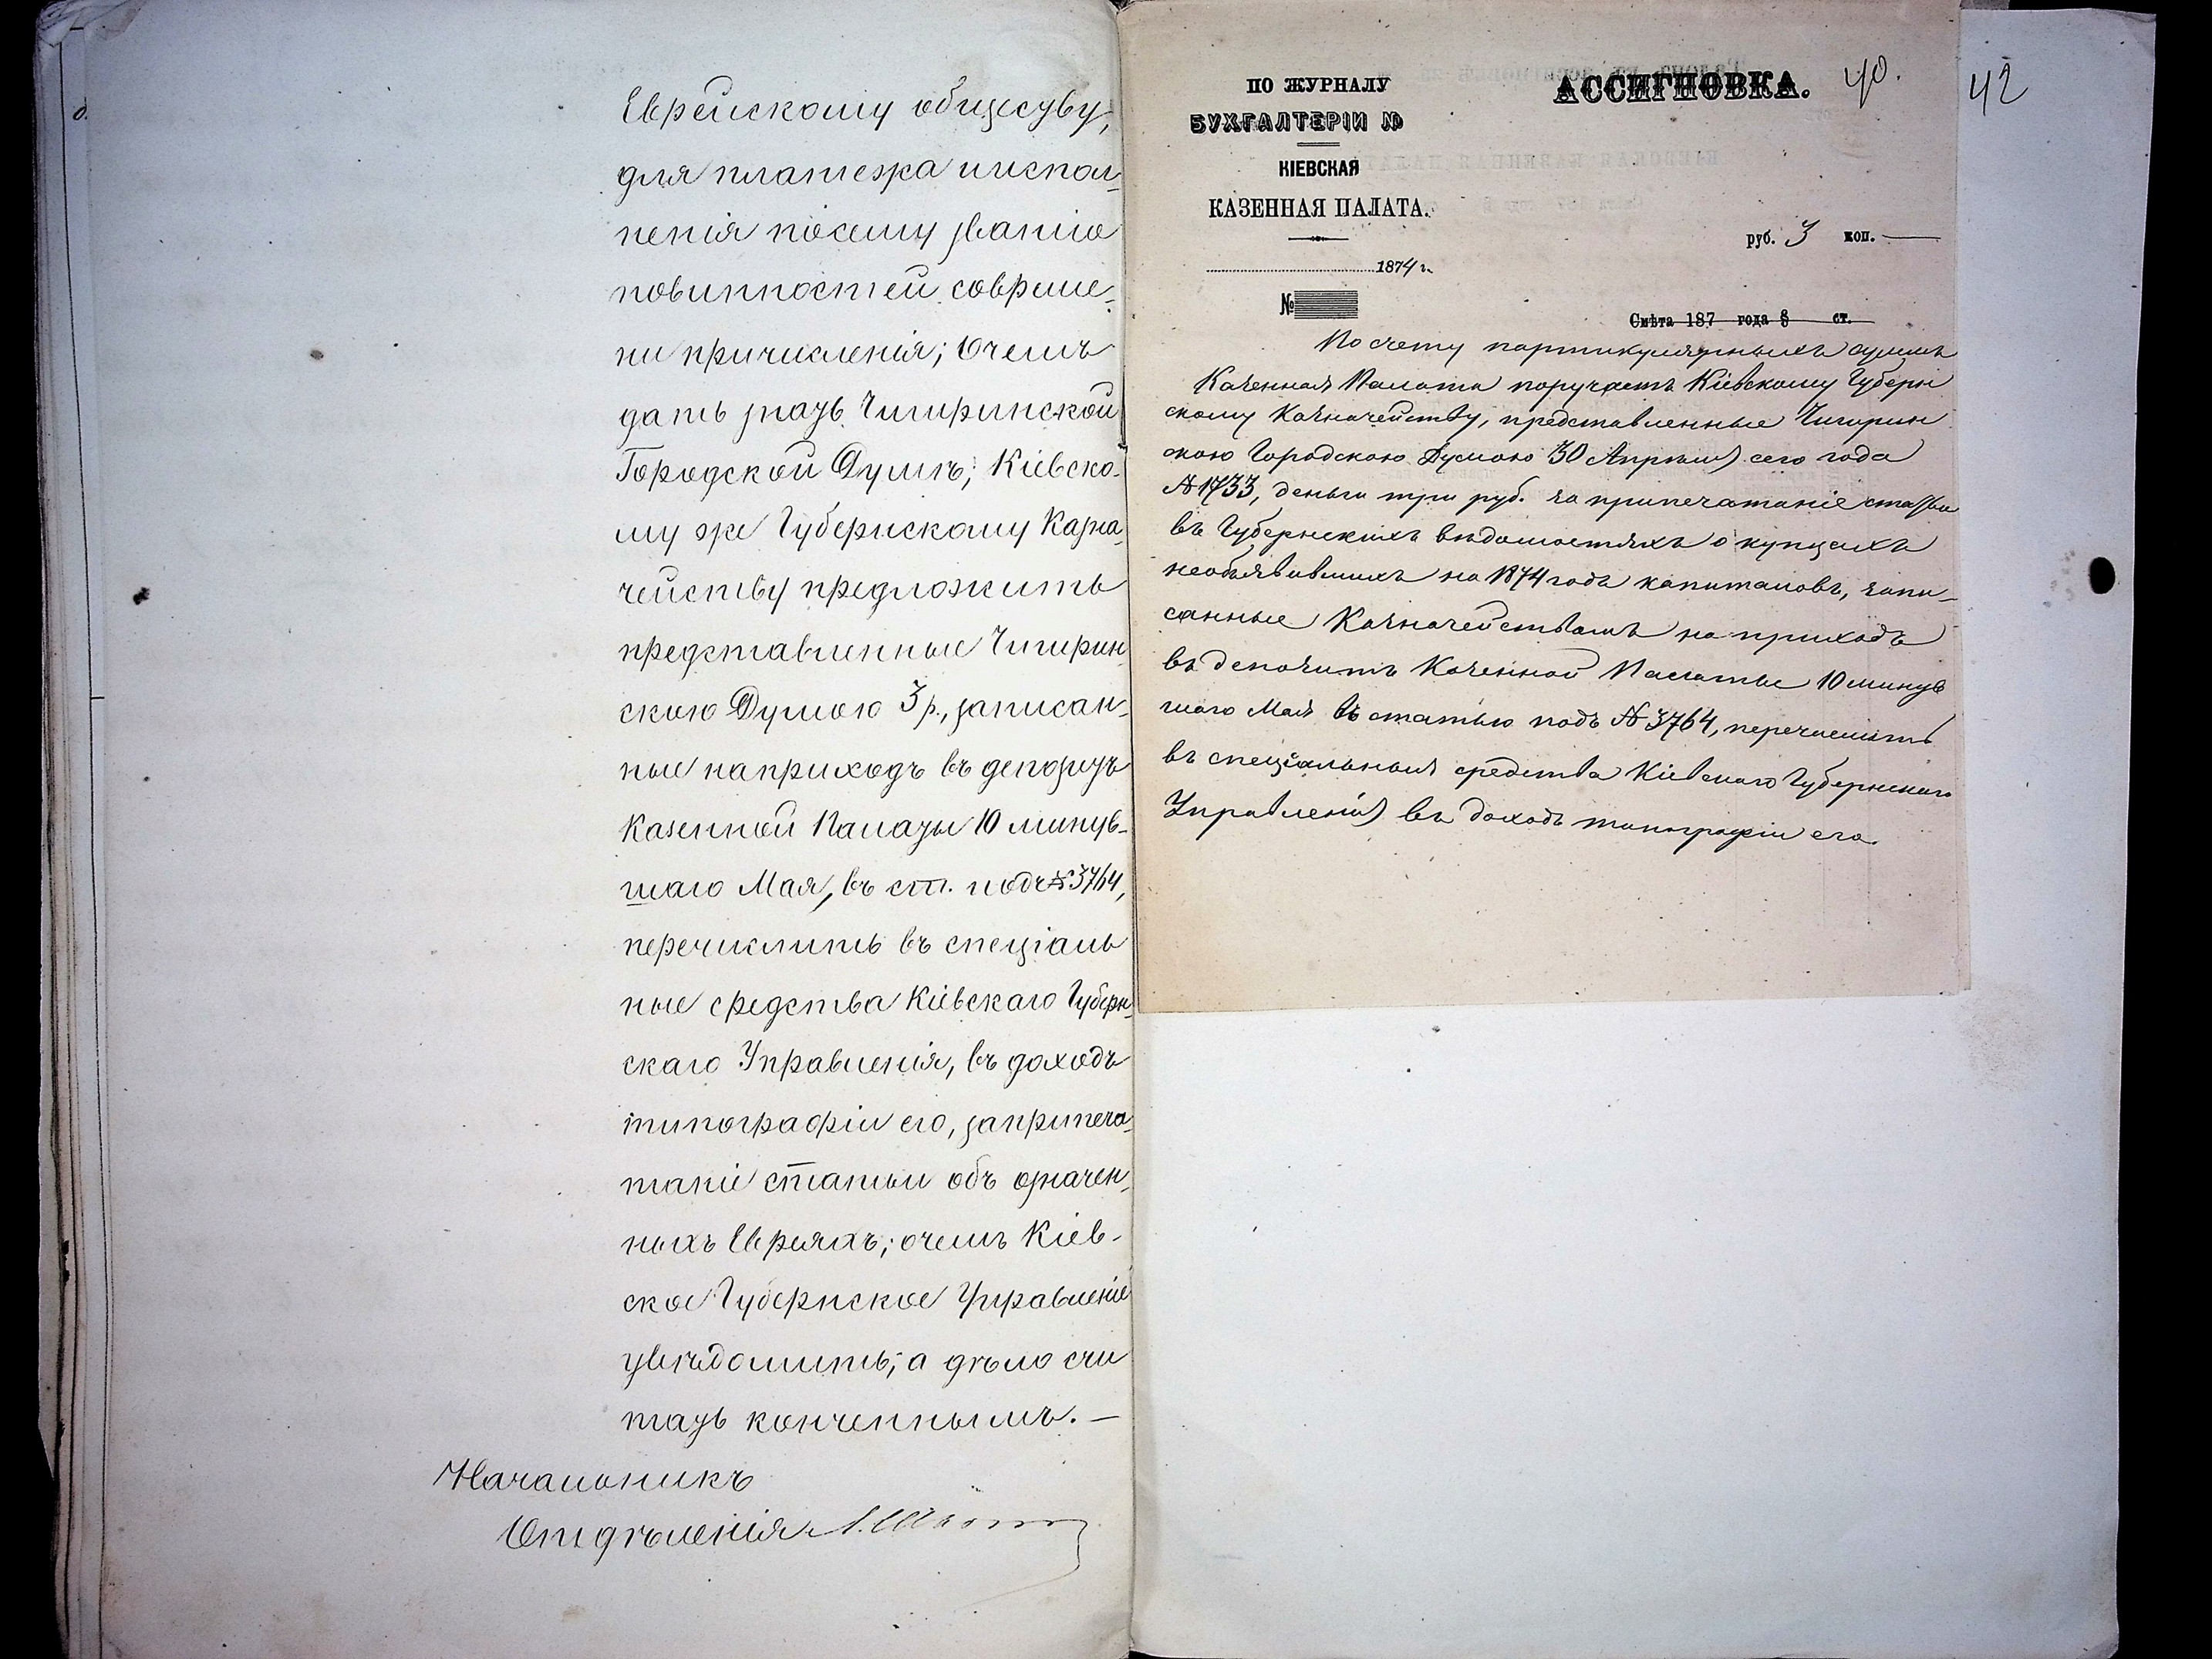 Еврейскому обществу,
для платежа и испол-
ненія по сему званію
повинностей со време-
ни причисленія; о чемъ
дать указъ Чигиринской
Городской Думѣ; Кіевско-
му же Губернскому Казна-
чейству предложить
представленные Чигирин-
скою Думою 3 р., записан-
ные на приходъ въ депозитъ
Казенной Палаты 10 минув-
шаго Мая, въ ст. подъ № 3764,
перечислить въ спеціаль
ные средства Кіевскаго Губерн-
скаго Управленія, въ доходъ
типографіи его, за припеча-
таніе статьи объ означен-
ныхъ Евреяхъ; о чемъ Кіев-
ское Губернское Управленіе
увѣдомить; а дѣло счи
тать конченнымъ. —
Начальникъ
Отдѣленія
ПО ЖУРНАЛУ
БУХГАЛТЕРІИ №
КІЕВСКАЯ
КАЗЕННАЯ ПАЛАТА.
1874 г.
№
АССИГНОВКА.
40.
42
руб. 3 коп. —
Смѣта 187 года § ст.
По счету партикулярныхъ суммъ
Казенная Палата поручаетъ Кіевскому Губерн
скому Казначейству, представленные Чигирин
скою Городскою Думою 30 Апрѣля сего года
№ 1733, деньги три руб. за припечатаніе статьи
въ Губернскихъ вѣдомостяхъ о купцахъ
необъявившихъ на 1874 годъ капиталовъ, запи-
санные Казначействомъ на приходъ
въ депозитъ Казенной Палаты 10 минув
шаго Мая въ статью подъ № 3764, перечислить
въ спеціальныя средства Кіевскаго Губернскаго
Управленія въ доходъ типографіи его.